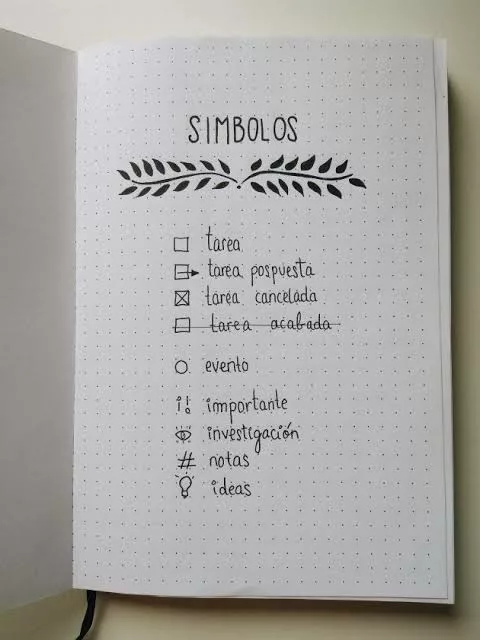 SIMBOLOS
tarea
tarea pospuesta
tarea cancelada
tarea acabada
evento
¡! importante
investigación
# notas
ideas